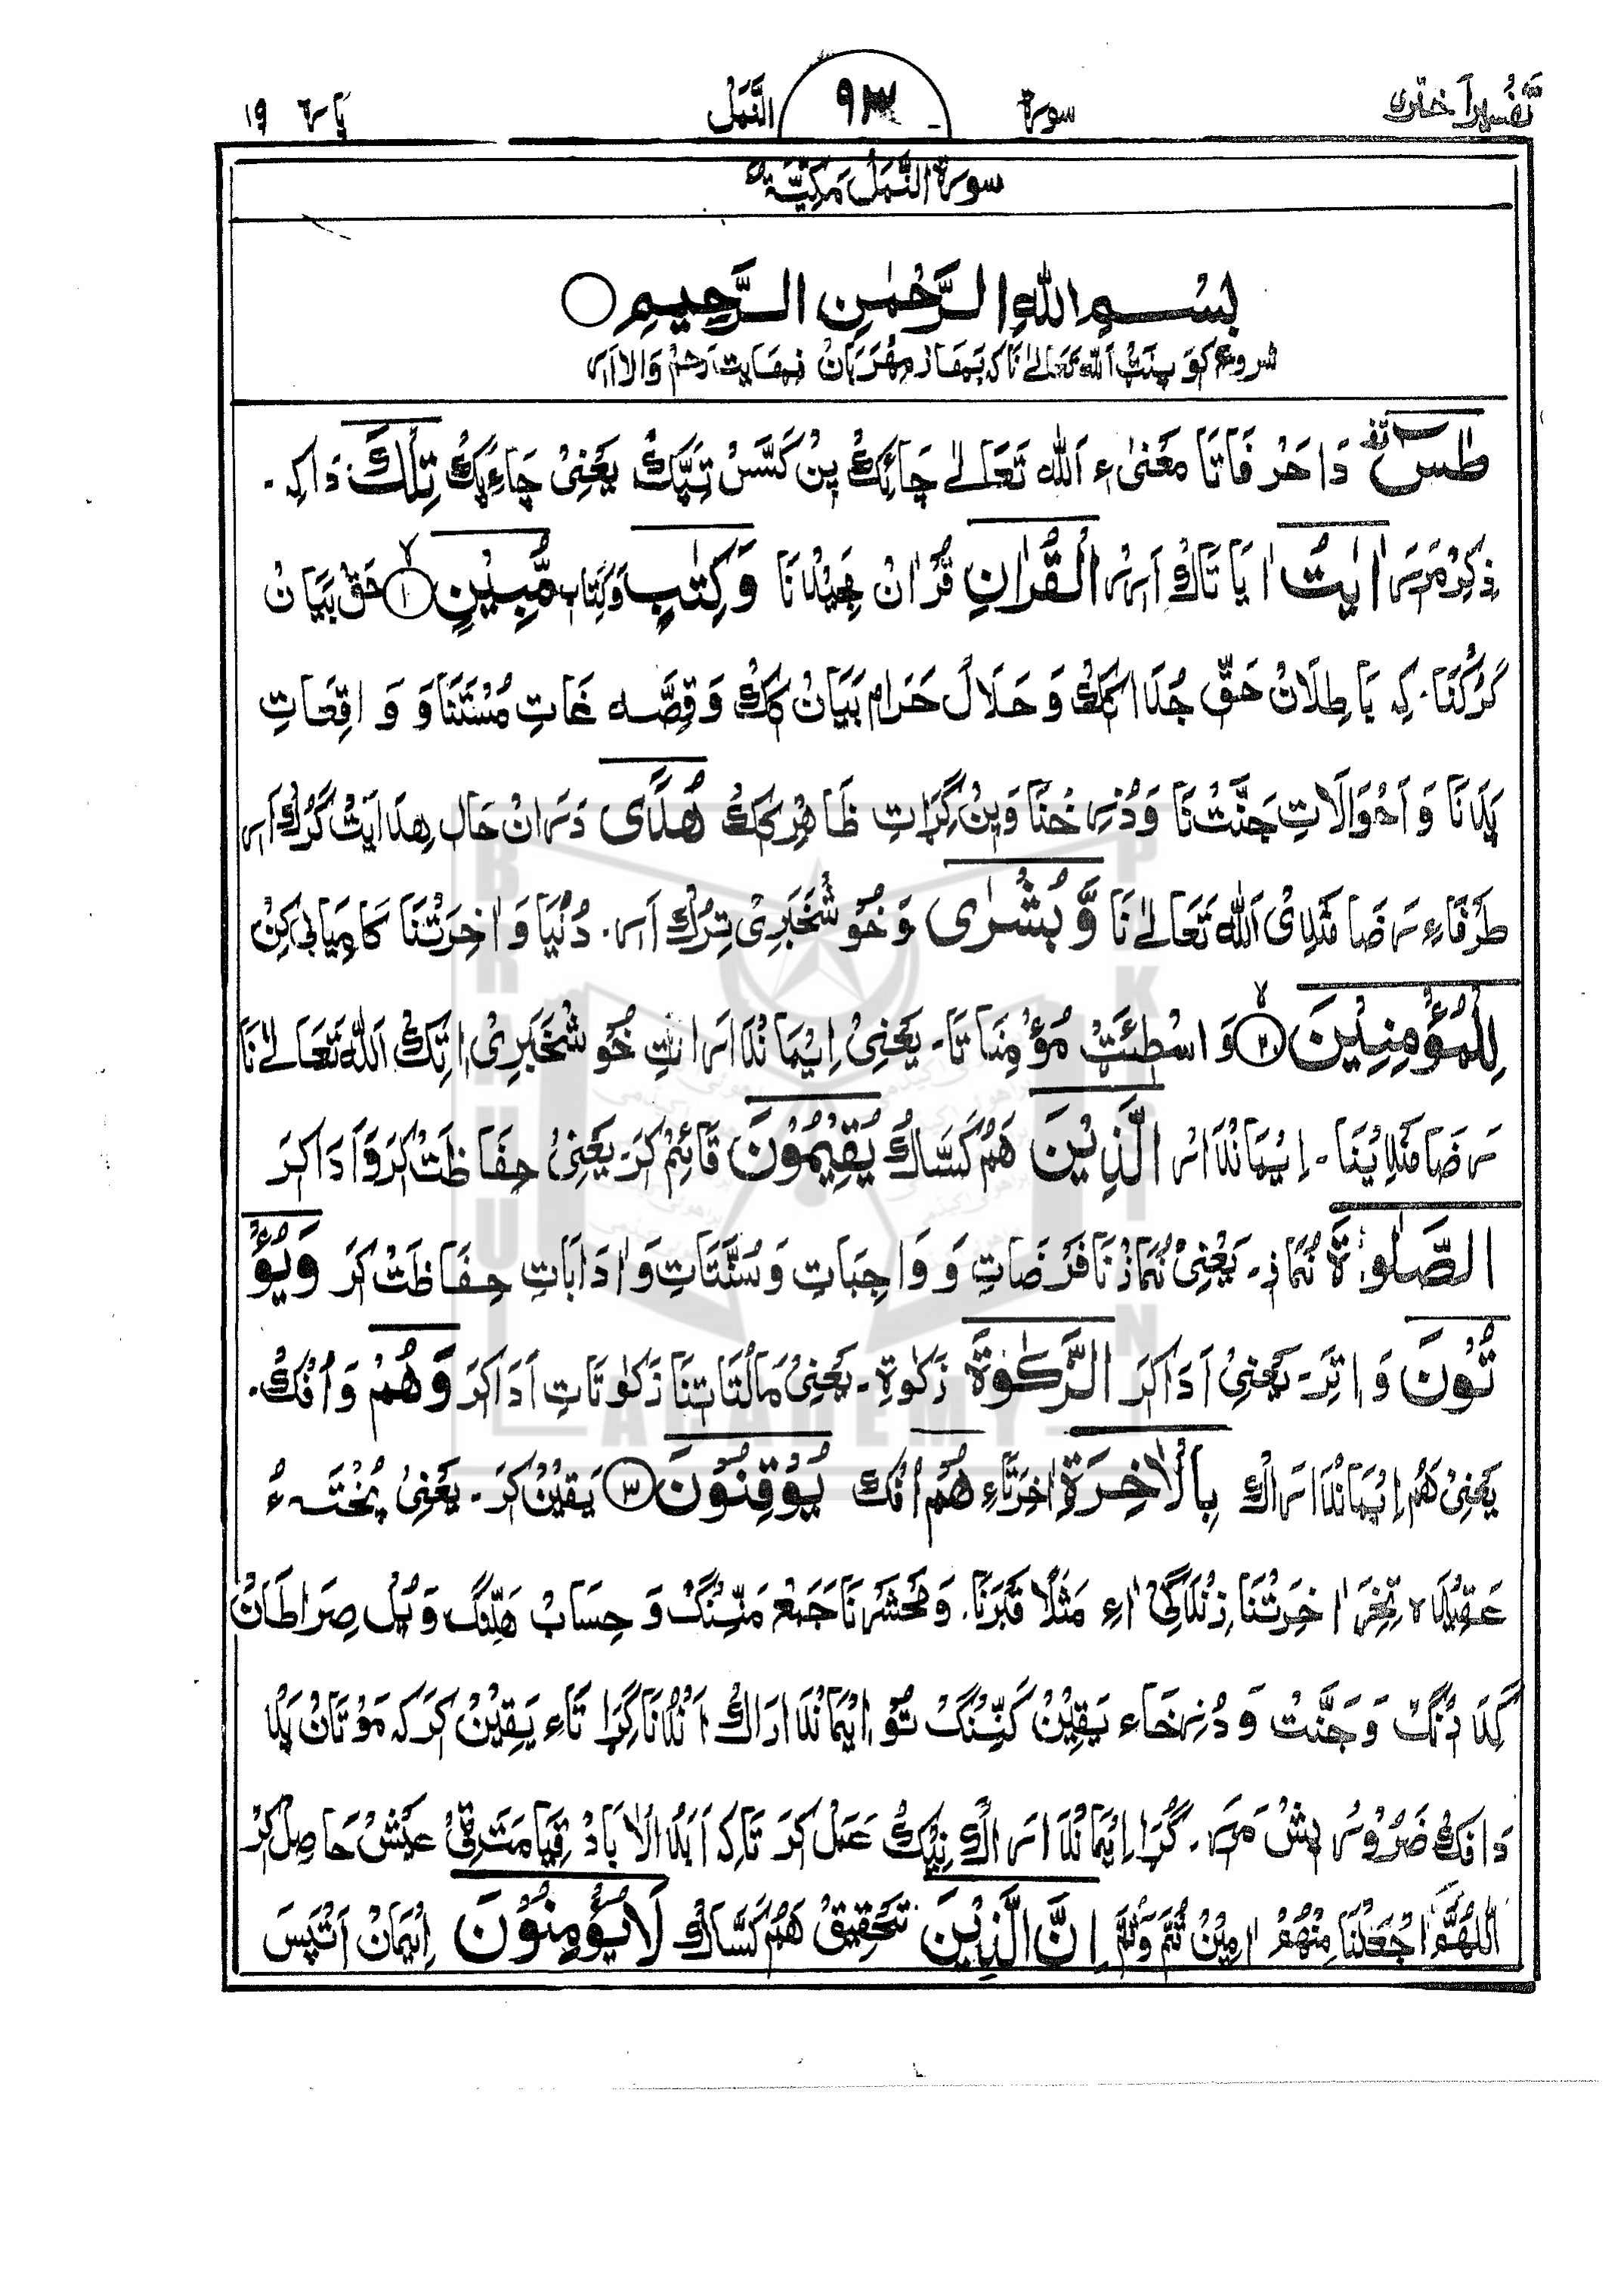 تَفسِیر اَختری سورۃ ٩٣ النَّمل پارہ ١٩
سورۃ النَّمل مَکِّیَّۃ
بِسْمِ اللهِ الرَّحْمٰنِ الرَّحِيمِ
شروع کَو پِنَٹْ اَللہ تَعَالےٰ نَا کہ بَھَاز مِهْرَبَانْ نِهَایت رَحم وَالا اَرے
طٰسٓ دَا حَرفَاتَا مَعْنیٰ ءِ اَللہ تَعَالےٰ چَائِکْ پِنْ کَسَّسْ تِپَّکْ یَعْنِیْ چَاءِپَکْ تِلْكَ دَا کِہ۔
ذِکِرْ مَرَیہ اٰیٰتُ اٰیَا تَاکْ اَرٖیْ الْقُرْاٰنِ قُرْاٰنْ مَجِیْدْنَا وَكِتٰبٍ وَکِتَاب مُّبِيْنٍ ١ حَقْ بَیَانْ
کَرُکْنَا۔ کِہ بَاطِلَانْ حَقِّ جُدَا کَکْ وَ حَلَالْ حَرَام بَیَانْ کَکْ وَ قِصَّہ غَاتِ مُسْتَنَا وَ وَاقِعَاتِ
پَدَنَا وَ اَحْوَالَاتِ جَنَّتْ نَا وَ دُزِہ خْنَا وَپِنْ گِرَاتِ ظَاهِرْ کَکْ هُدًى دَرَانْ حَال هِدَایَتْ کَرُکْ اَرے
طَرْفَاءِ رَضَا مَنْدِیْ اَللہ تَعَالےٰ نَا وَّبُشْرٰى وَ خُوشْخَبَرِیْ تِرُکْ اَرے۔ دُنْیَا وَ اٰخِرَتْنَا کَامِیَابِی کِنْ
لِلْمُؤْمِنِيْنَ ٢ وَاسْطَئَٹْ مُؤْمِنَاتَا۔ یَعْنِیْ اِیْمَانْدَارَاتِ خُوشْخَبَرِیْ اِتِکْ اَللہ تَعَالےٰ نَا
رَضَا مَنْدِیْنَا۔ اِیْمَانْدَارْ الَّذِيْنَ هَمْ کَسَّاکْ يُقِيْمُوْنَ قَائِمْ کَرَ۔ یَعْنِیْ حِفَاظَتْ کَرَ وَ اَدَا کَرَ
الصَّلٰوةَ نُمَازِ۔ یَعْنِیْ نُمَازْنَا فَرْضَاتِ وَ وَاجِبَاتِ وَ سُنَّتَاتِ وَ اٰدَابَاتِ حِفَاظَتْ کَرَ وَيُؤْ
تُوْنَ وَ اِتِرَ۔ یَعْنِیْ اَدَا کَرَ الزَّكٰوةَ زَکٰوۃِ۔ یَعْنِیْ مَالْتَاتِنَا زَکٰوتَاتِ اَدَا کَرَ وَهُمْ وَ اُفْکْ۔
یَعْنِیْ هَمْ اِیْمَانْدَارَاکْ بِالْاٰخِرَةِ اٰخِرَتَاءِ هُمْ اُفْکْ يُوْقِنُوْنَ ٣ یَقِیْنْ کَرَ۔ یَعْنِیْ پُخْتَہ ءُ
عَقِیْدَہ تِخِرَ اٰخِرَتْنَا زِنْدَگِیْ اءِ مَثَلًا قَبَرْنَا۔ وَ مَحْشَرْنَا جَمَعْ مَنِّنْگْ وَ حِسَابْ هَلِّنْگ وَ پُلْ صِرَاطَانْ
گِدَارِنْگْ وَ جَنَّتْ وَ دُزِخَاء یَقِیْنْ کَنِّنْگْ تُو اِیْمَانْدَارَاکْ اَنْدُنَا گِرَاتَاء یَقِیْنْ کَرَ کہ مَوْتَانْ پَدْ
دَافْکْ ضَرُوْرْ پِشْ مَرَیہ۔ گُڑَا اِیْمَانْدَارَاکْ نِیْکْ عَمَلْ کَرَ تَاکِہ اَبَدُ الْاٰبَادْ قِیَامَتَ ٹِیْ عَیْشْ حَاصِلْ کَرْ
اَللّٰهُمَّ اجْعَلْنَا مِنْهُمْ اٰمِیْنْ ثُمَّ اِنَّ الَّذِيْنَ تَحْقِیْقْ هَمْ کَسَّاکْ لَا يُؤْمِنُوْنَ اِیْمَانْ اَتْپَسَ
BRAHUI
ACADEMY